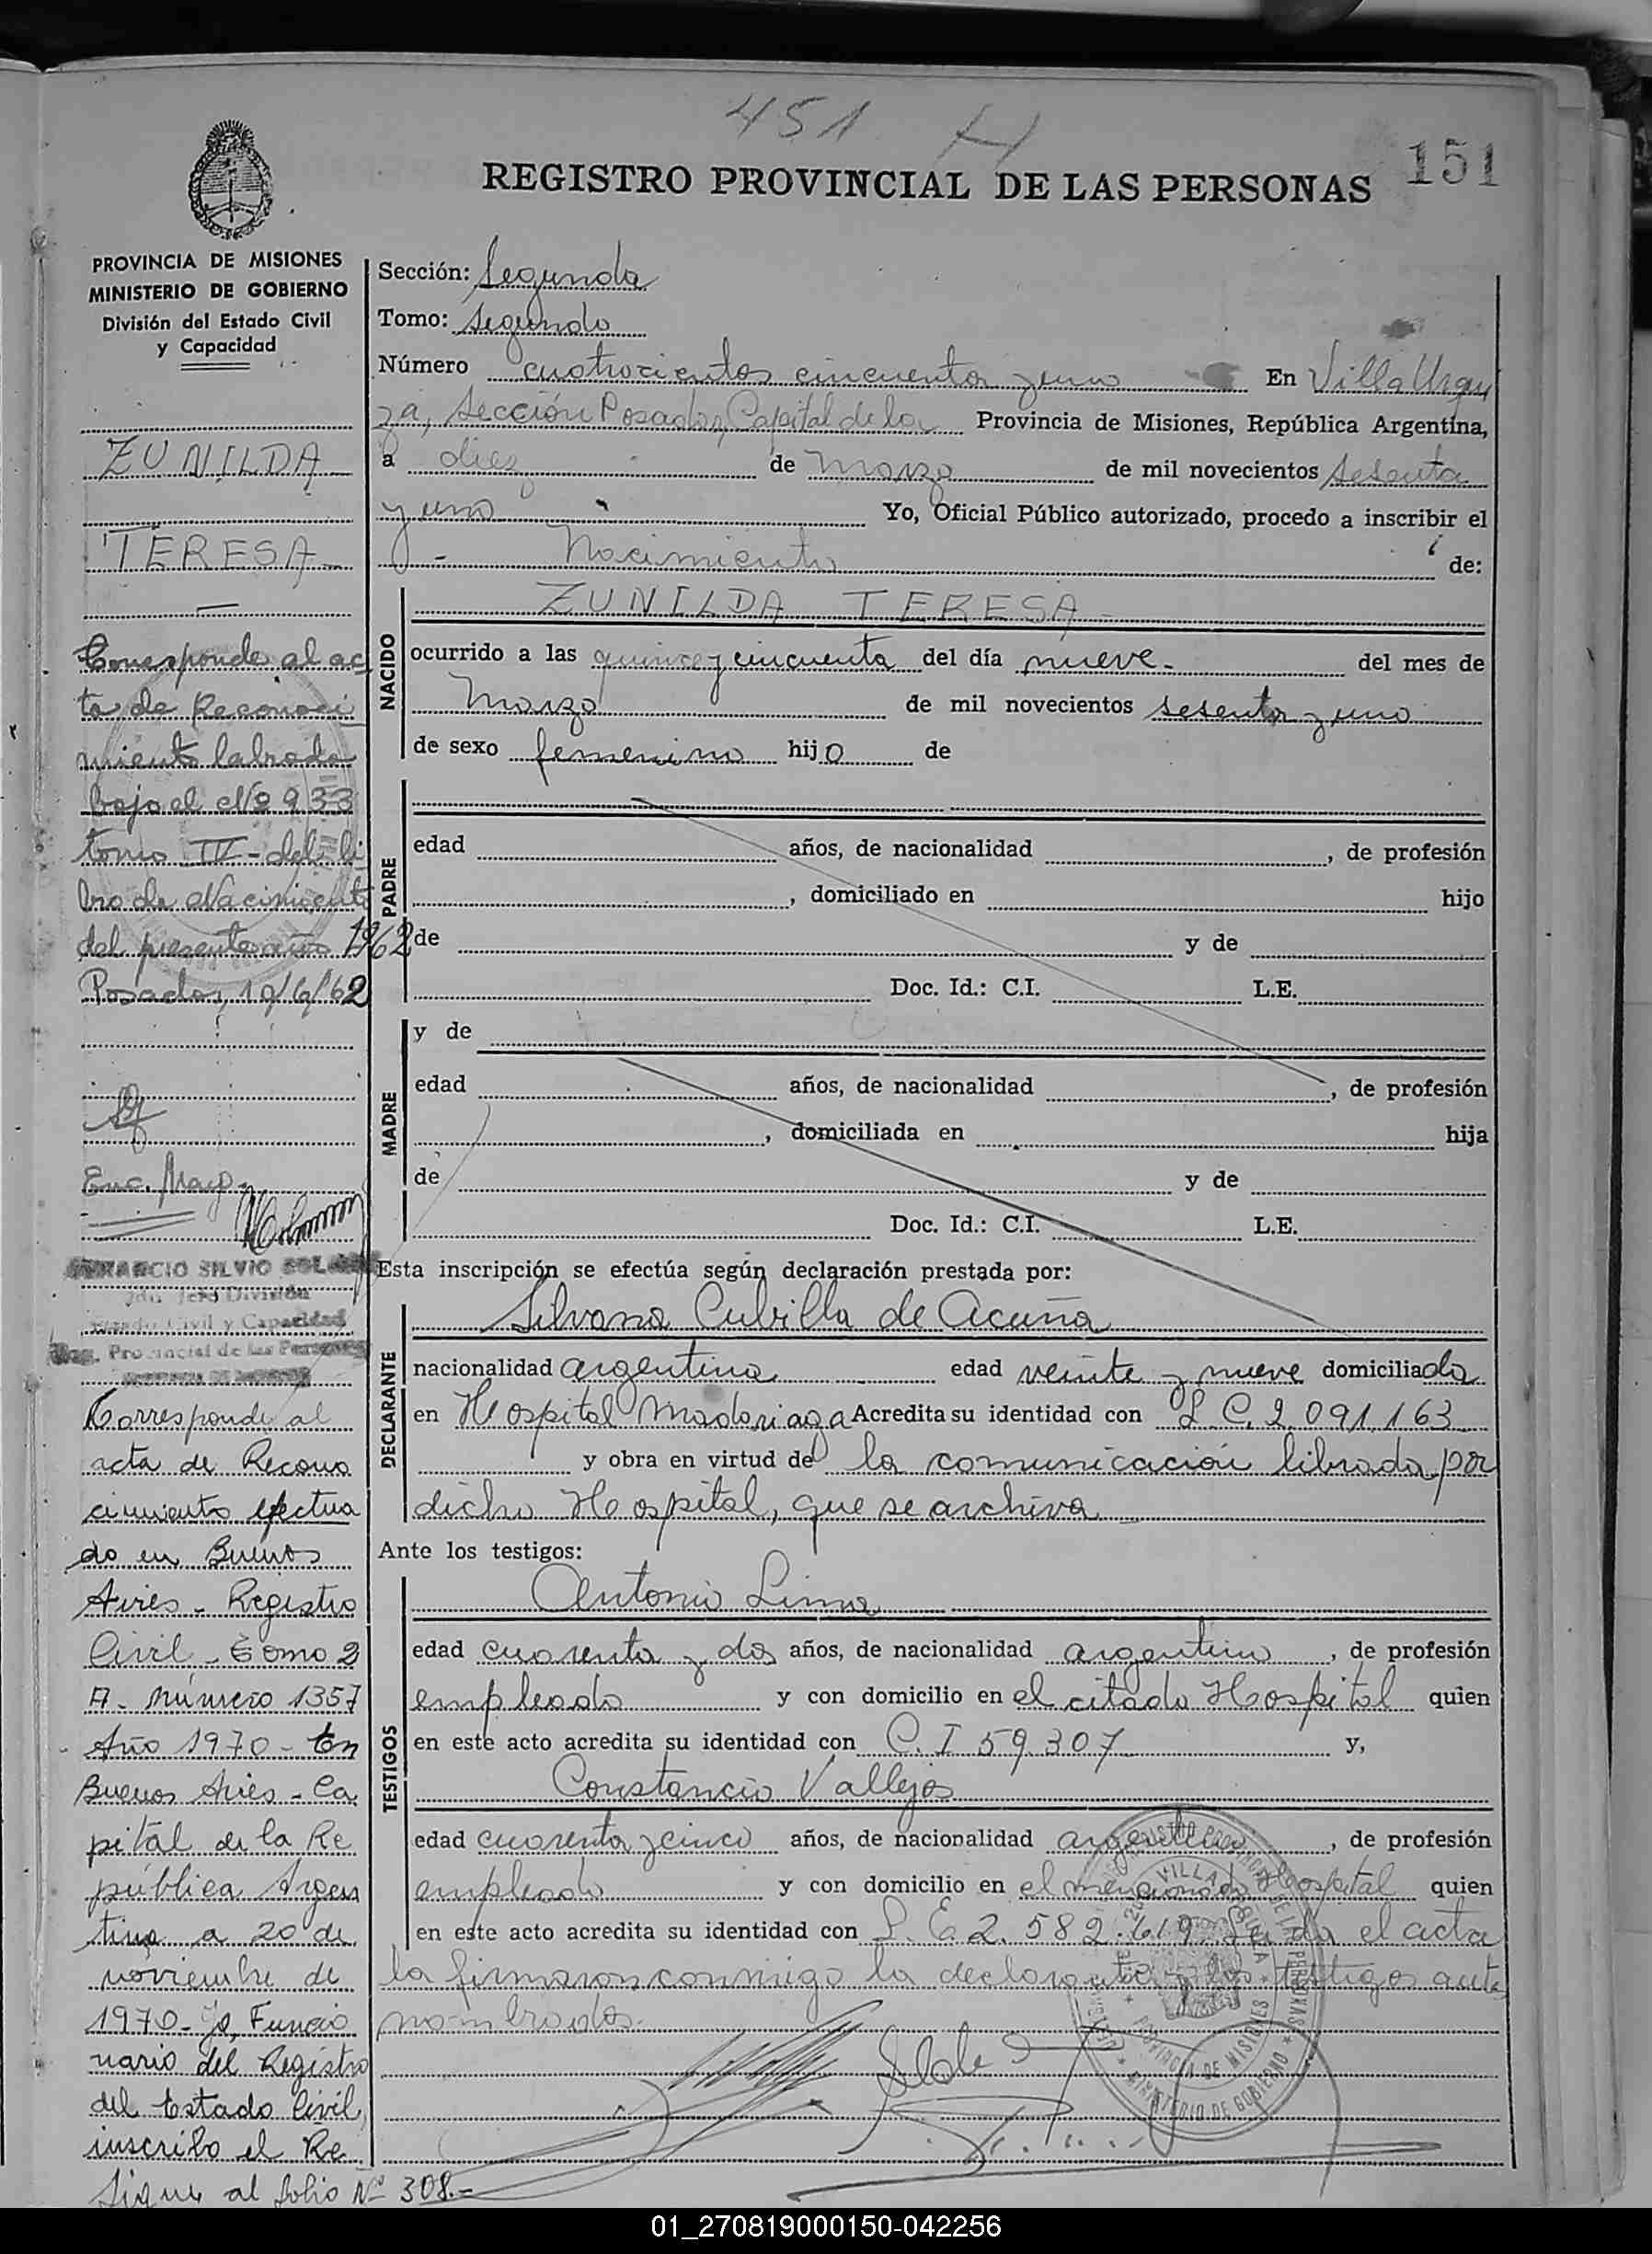 451 H
REGISTRO PROVINCIAL DE LAS PERSONAS 151
PROVINCIA DE MISIONES
MINISTERIO DE GOBIERNO
División del Estado Civil
y Capacidad
ZUNILDA
TERESA
Corresponde al ac
ta de Reconoci
miento labrada
bajo el Nº 933
tomo IV - del li
bro de Nacimiento
del presente año 1962
Posadas, 19/6/62
Enc. Mayo
SILVIO
2do. Jefe División
Estado Civil y Capacidad
Reg. Provincial de las Personas
Corresponde al
acta de Recono
cimiento efectua
do en Buenos
Aires - Registro
Civil - Tomo 2
A - número 1357
Año 1970 - En
Buenos Aires - Ca
pital de la Re
pública Argen
tina a 20 de
noviembre de
1970 - Yo, Funcio
nario del Registro
del Estado Civil,
inscribo el Re
Sigue al folio Nº 308.-
Sección: Segunda
Tomo: Segundo
Número cuatrocientos cincuenta y uno En Villa Urqui
za, Sección Posadas, Capital de la Provincia de Misiones, República Argentina,
a diez de marzo de mil novecientos sesenta
y uno Yo, Oficial Público autorizado, procedo a inscribir el
- Nacimiento de:
NACIDO
ZUNILDA TERESA-
ocurrido a las quince y cincuenta del día nueve- del mes de
marzo de mil novecientos sesenta y uno
de sexo femenino hijo de
PADRE
edad años, de nacionalidad , de profesión
, domiciliado en hijo
de y de
Doc. Id.: C.I. L.E.
MADRE
y de
edad años, de nacionalidad , de profesión
, domiciliada en hija
de y de
Doc. Id.: C.I. L.E.
Esta inscripción se efectúa según declaración prestada por:
DECLARANTE
Silvana Cubilla de Acuña
nacionalidad argentina edad veinte y nueve domiciliada
en Hospital Madariaga Acredita su identidad con L.C. 2.091.163
y obra en virtud de la comunicación librada por
dicho Hospital, que se archiva -
Ante los testigos:
TESTIGOS
Antonio Lima
edad cuarenta y dos años, de nacionalidad argentino , de profesión
empleado y con domicilio en el citado Hospital quien
en este acto acredita su identidad con C.I 59.307 y,
Constancio Vallejos
edad cuarenta y cinco años, de nacionalidad argentino , de profesión
empleado y con domicilio en el mencionado Hospital quien
en este acto acredita su identidad con L.E. 2.582.619. el acta
la firmaron conmigo la declarante y los testigos ante
nombrados.
REGISTRO PROVINCIAL DE LAS PERSONAS * MINISTERIO DE GOBIERNO *
VILLA URQUIZA * PROVINCIA DE MISIONES
01_270819000150-042256